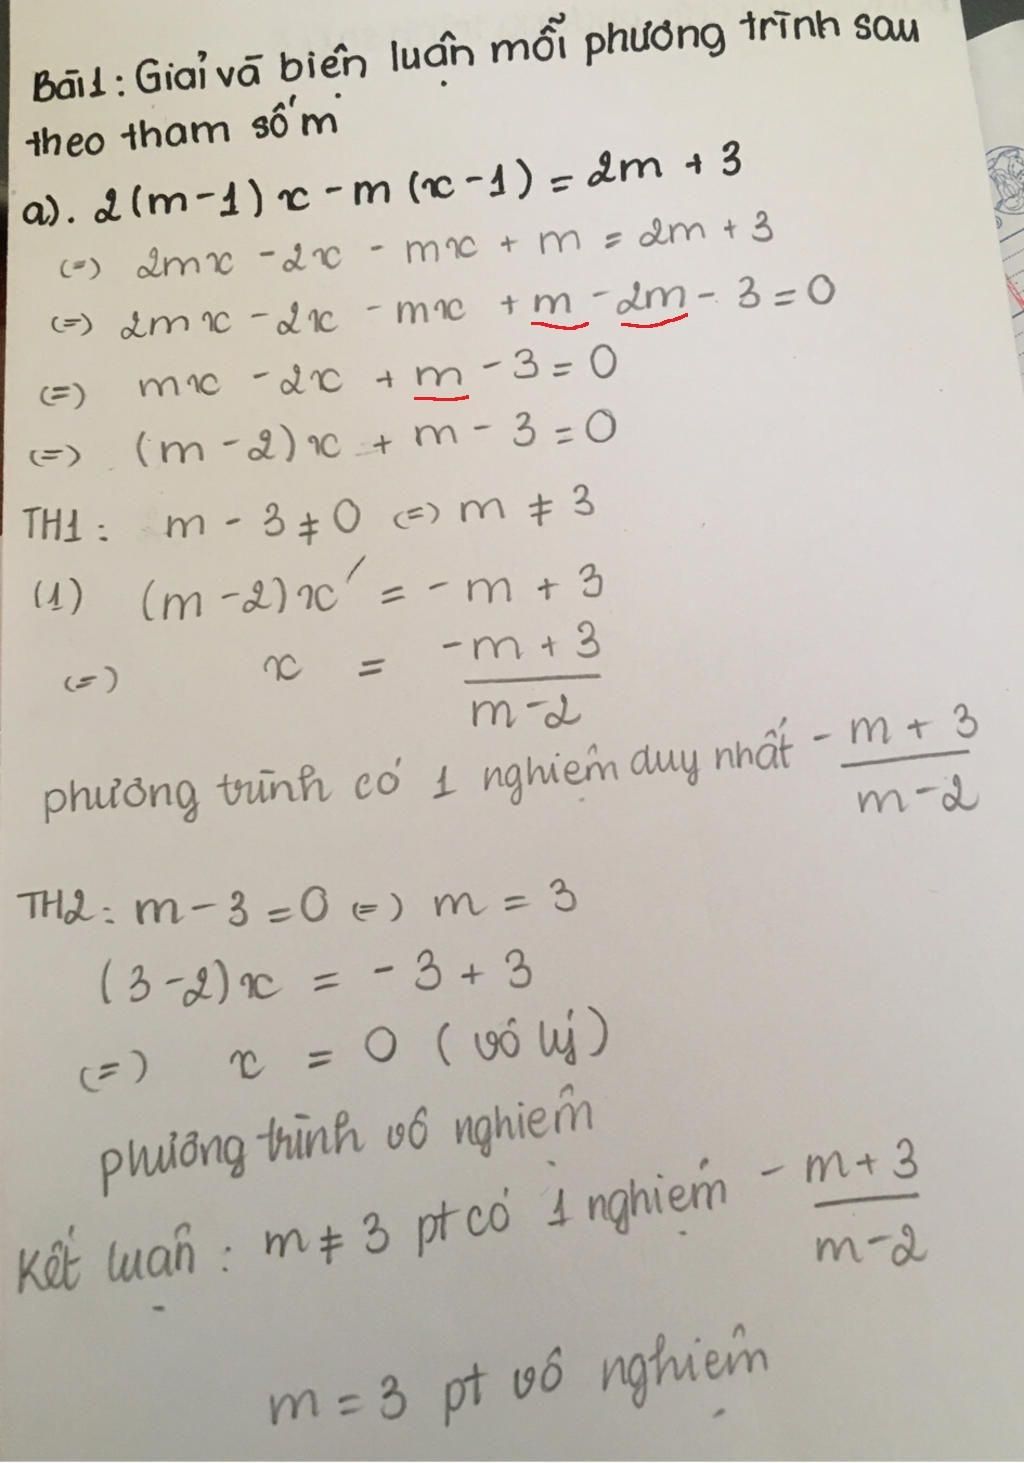 Bài1: Giải và biện luận mỗi phương trình sau
theo tham số m
a). 2(m-1)x - m(x-1) = 2m + 3
(=) 2mx - 2x - mx + m = 2m + 3
(=) 2mx - 2x - mx + m - 2m - 3 = 0
(=) mx - 2x + m - 3 = 0
(=) (m-2)x + m - 3 = 0
TH1: m - 3 ≠ 0 (=) m ≠ 3
(1) (m-2)x = -m + 3
(=) x = \frac{-m+3}{m-2}
phương trình có 1 nghiệm duy nhất \frac{-m+3}{m-2}
TH2: m - 3 = 0 (=) m = 3
(3-2)x = -3 + 3
(=) x = 0 (vô lý)
phương trình vô nghiệm
Kết luận: m ≠ 3 pt có 1 nghiệm \frac{-m+3}{m-2}
m = 3 pt vô nghiệm